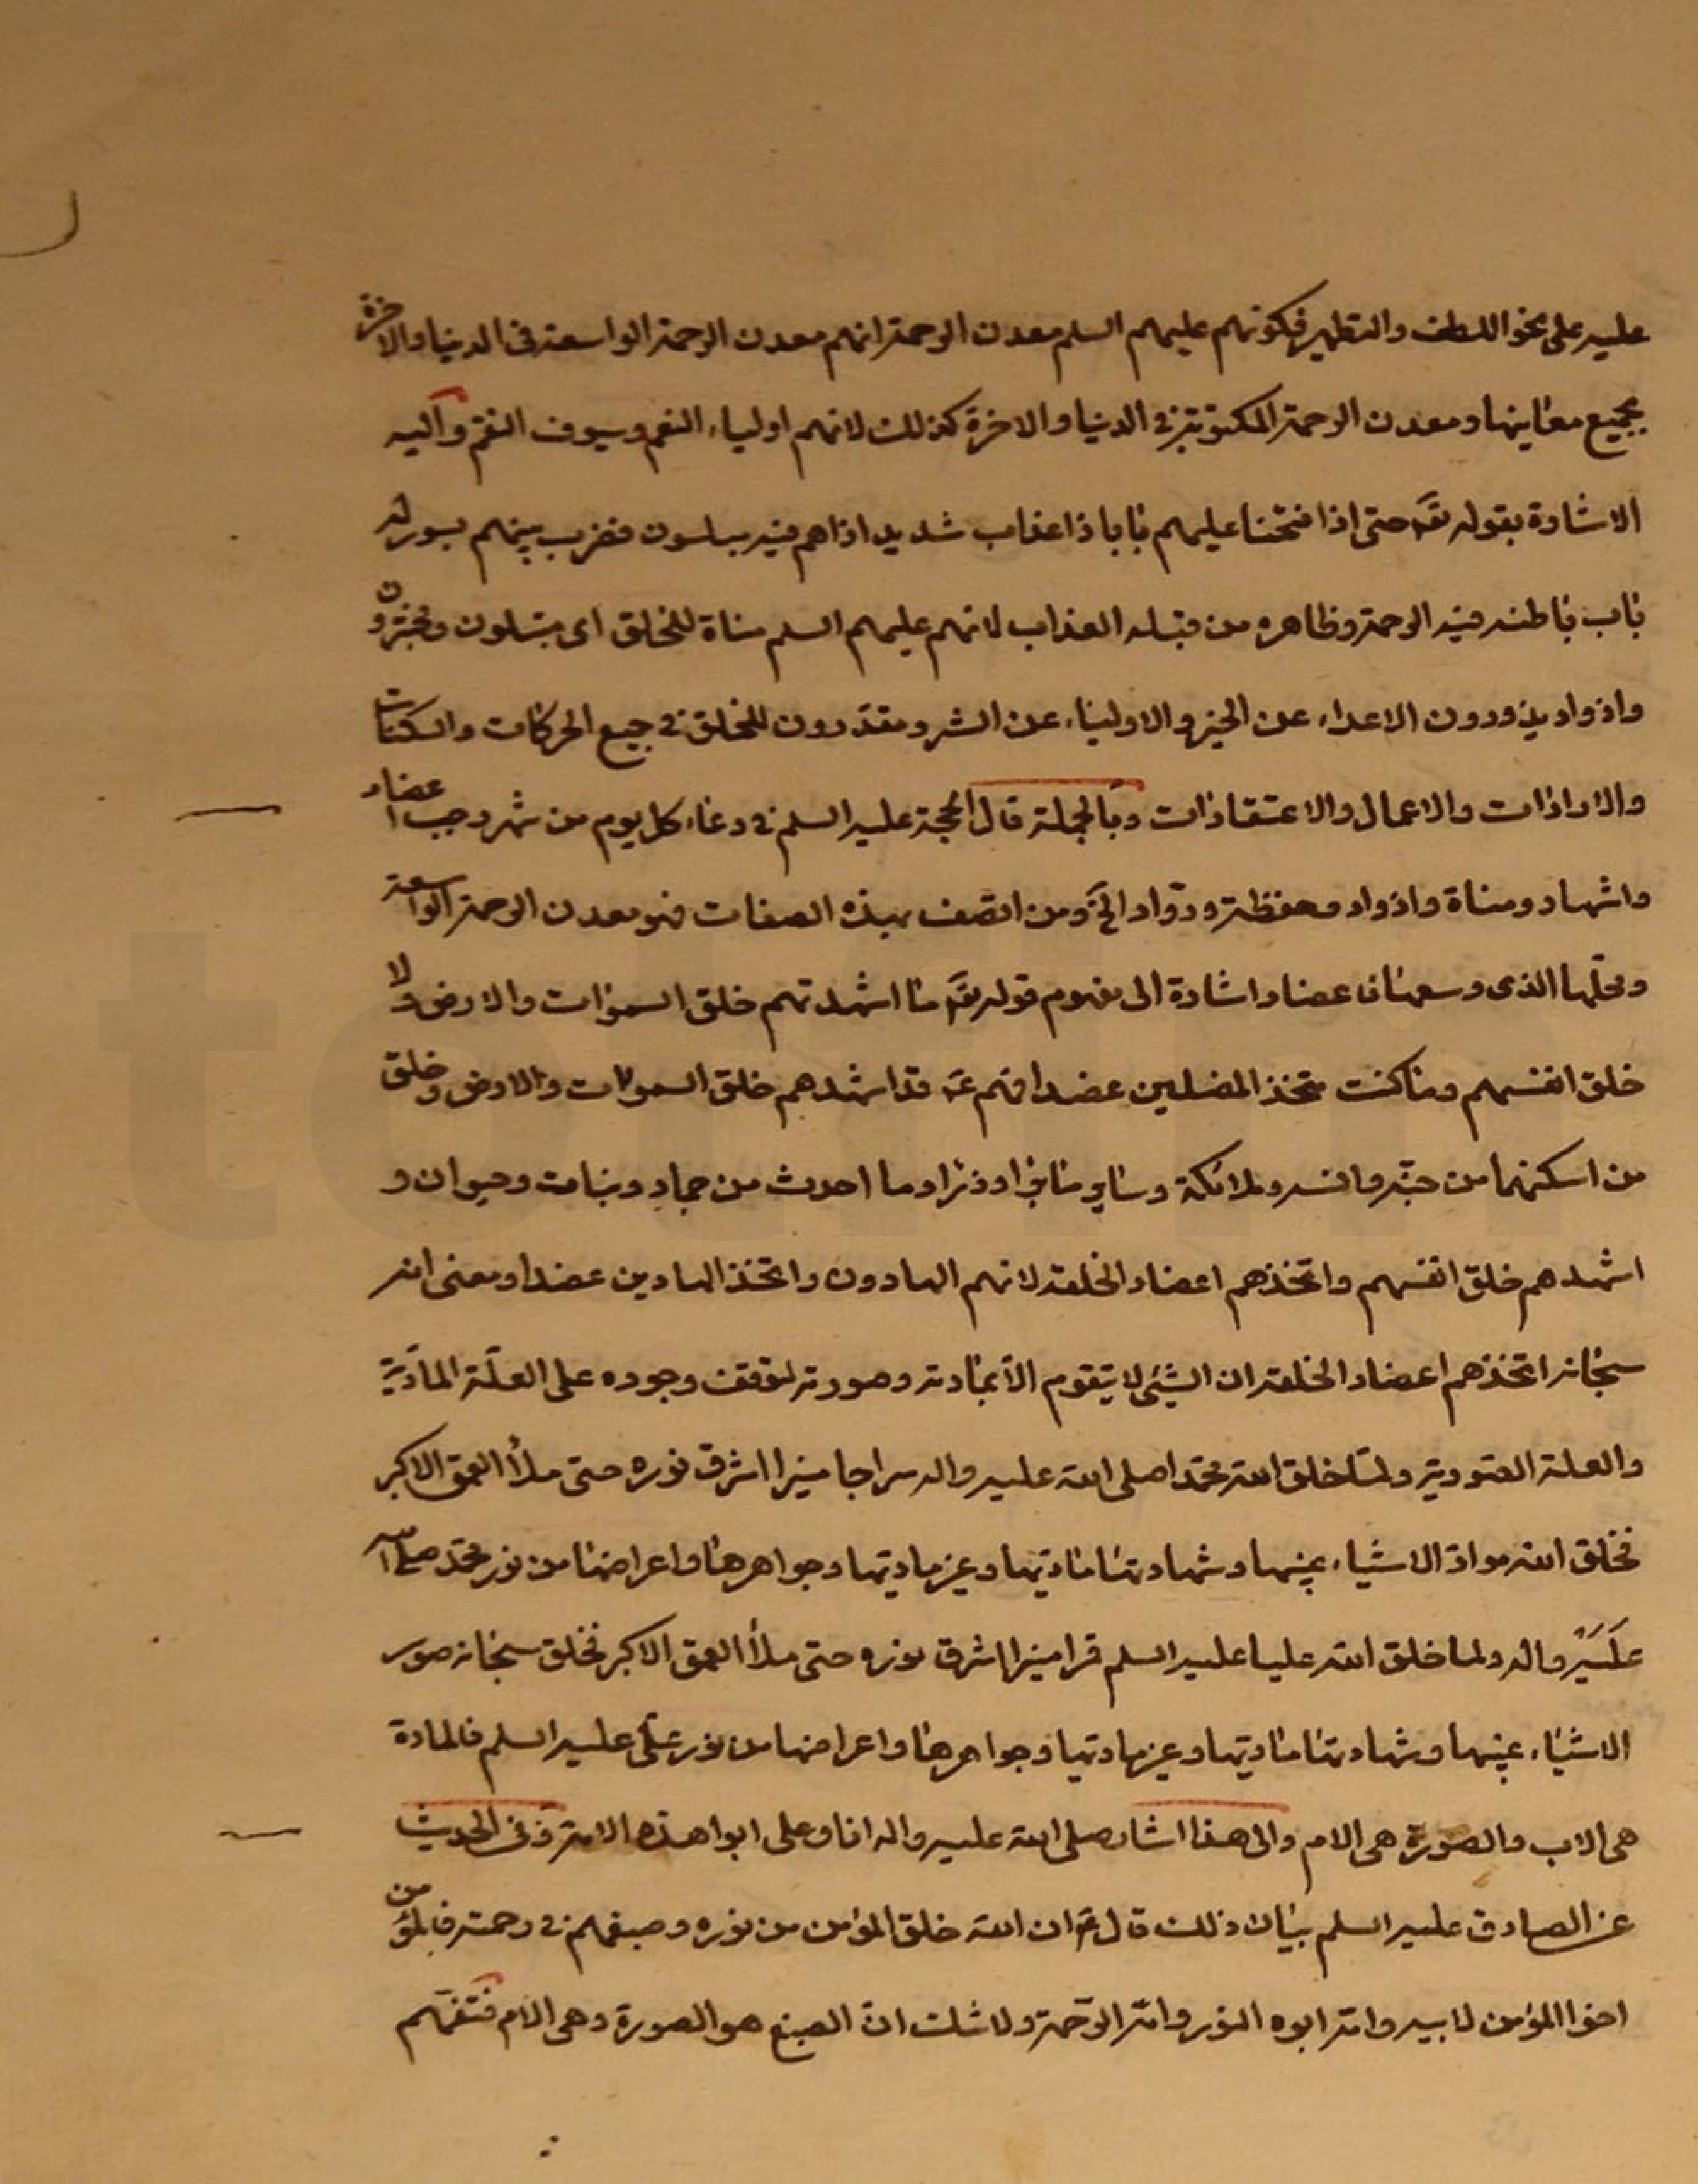 عليه على نحو اللطف والتطهير فكونهم عليهم السلم معدن الرحمة انهم معدن الرحمة الواسعة فى الدنيا والاخرة
بجميع معاينها ومعدن الرحمة المكتوبة فى الدنيا والاخرة كذلك لانهم اولياء النعم وسيوف النقم واليه
الاشارة بقوله تعَ حتى اذا فتحنا عليهم بابا ذا عذاب شديد اذا هم فيه مبلسون فضرب بينهم بسور له
باب باطنه فيه الرحمة وظاهره من قبله العذاب لانهم عليهم السلم مناة للخلق اى مبتلون ومختبرون
واذواد يذودون الاعداء عن الخير والاولياء عن الشر ومقدّرون للخلق فى جميع الحركات والسكنات
والارادات والاعمال والاعتقادات وبالجملة قال الحجة عليه السلم فى دعاء كل يوم من شهر رجب اعضاد
واشهاد ومناة واذواد وحفظة وروّاد الخَ ومن اتصف بهذه الصفات فهو معدن الرحمة الواسعة
ومحلها الذى وسعها فاعضاد اشارة الى مفهوم قوله تعَ ما اشهدتهم خلق السموات والارض ولا
خلق انفسهم وما كنت متخذ المضلين عضدا فهم عَ قد اشهدهم خلق السموات والارض وخلق
من اسكنهما من جنّ وانس وملائكة وساير ما برا وذرا وما احدث من جماد ونبات وحيوان و
اشهدهم خلق انفسهم واتخذهم اعضاد الخلقه لانهم الهادون واتخذ الهادين عضدا ومعنى انه
سبحانه اتخذهم اعضاد الخلقه ان الشيئ لا يتقوم الاّ بمادته وصورته لتوقف وجوده على العلّة المادّيّة
والعلة الصّوديّة ولمّا خلق الله محمّدا صلى الله عليه واله سراجا منيرا اشرق نوره حتى ملأ العمق الاكبر
فخلق الله موادّ الاشياء غيبها وشهادتها ماديتها وغير ماديتها وجواهرها واعراضها من نور محمّد صلى الله
عَلَيْه واله ولما خلق الله عليا عليه السلم قمرا منيرا اشرق نوره حتى ملأ العمق الاكبر فخلق سبحانه صور
الاشياء غيبها وشهادتها ماديتها وغير ماديتها وجواهرها واعراضها من نور علىّ عليه السلم فالمادة
هى الاب والصورة هى الام والى هذا اشار صلى الله عليه واله انا وعلى ابوا هذه الامة وفى الحديث
عن الصادق عليه السلم بيان ذلك قال عَ ان الله خلق المؤمن من نوره وصبغهم فى رحمته فالمؤمن
اخوا المؤمن لابيه وامّه ابوه النور وامّه الرّحمة ولا شك انّ الصبغ هو الصورة وهى الام فتفهّم